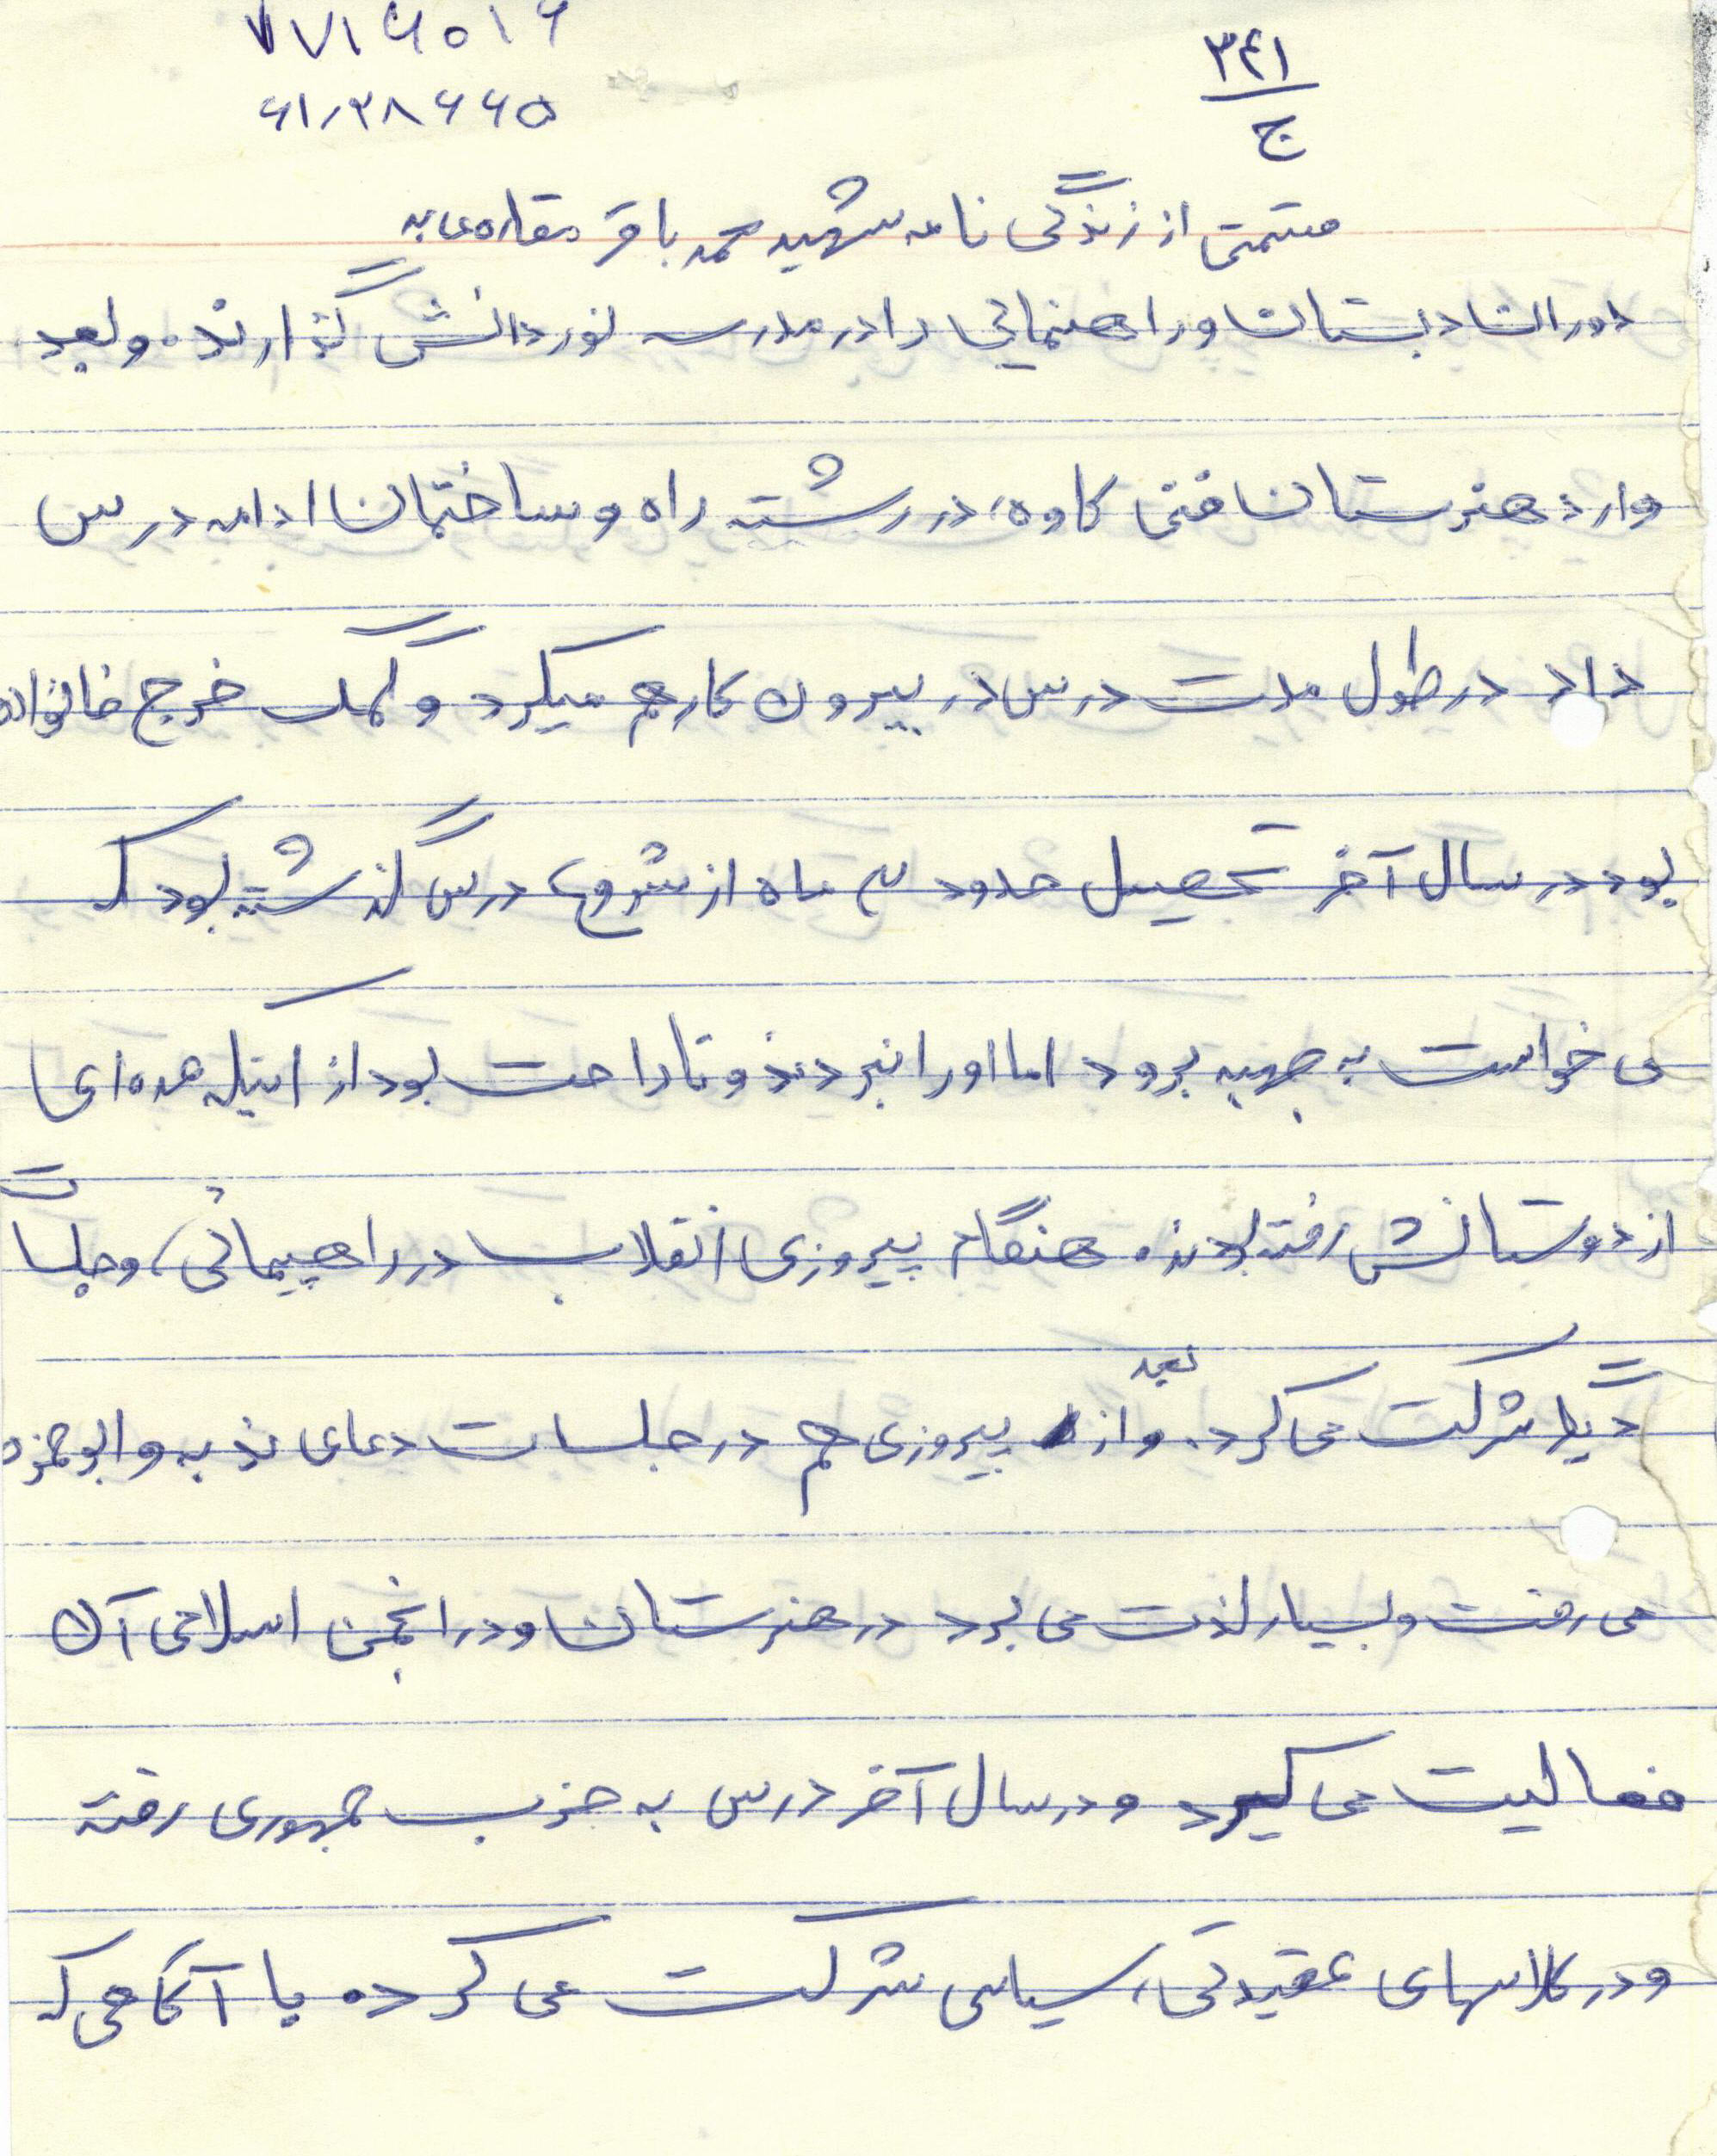 ۷۷۱۶۰۱۶
۶۱٫۲۸۶۶۵
۳۴۱
ج
قسمتی از زندگی نامه شهید محمد باقر
دوران دبستان و راهنمائی را در مدرسه نور دانش گذارند. و بعد
وارد هنرستان فنی کاوه، در رشته راه و ساختمان ادامه درس
داد در طول مدت درس در بیرون کار هم میکرد و کمک خرج خانواده
بود در سال آخر تحصیل حدود ۳ ماه از شروع درس گذشته بود که
می خواست به جبهه برود اما او را نبردند و ناراحت بود از اینکه عده ای
از دوستانش رفته بودند. هنگام پیروزی انقلاب در راهپیمائی، و جلسات
دیگر شرکت می کرد. و از بعد پیروزی هم در جلسات دعای ندبه و ابوحمزه
می رفت و بسیار لذت می برد در هنرستان و در انجمن اسلامی آن
فعالیت می کرد و در سال آخر درس به حزب جمهوری رفته
و در کلاسهای عقیدتی، سیاسی شرکت می کرده با آگاهی که